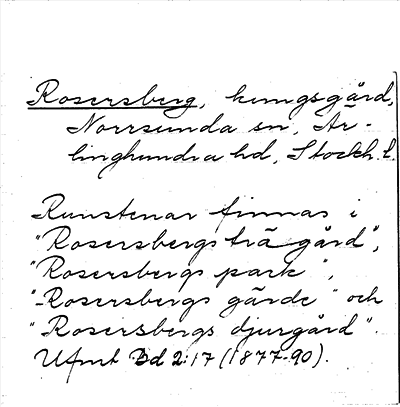 Rosersberg, kungsgård,
Norrsunda sn, Är-
linghundra hd, Stockh. l.
Runstenar finnas i
"Rosersbergs trägård",
"Rosersbergs park",
"Rosersbergs gärde" och
"Rosersbergs djurgård".
Ufmt Bd 2:17 (1877-90).